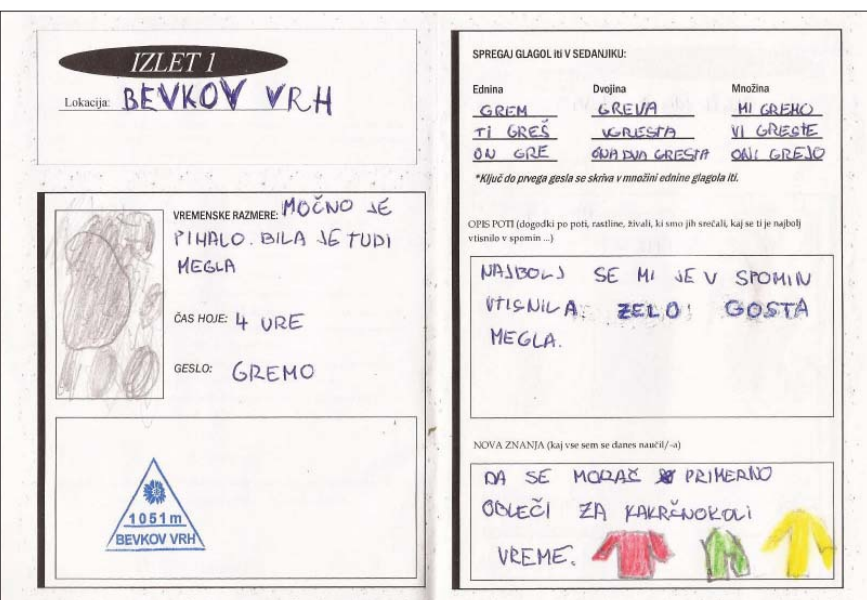 IZLET 1
Lokacija: BEVKOV VRH
VREMENSKE RAZMERE: MOČNO JE
PIHALO. BILA JE TUDI
MEGLA
ČAS HOJE: 4 URE
GESLO: GREMO
1051m
BEVKOV VRH
SPREGAJ GLAGOL iti V SEDANJIKU:
Ednina Dvojina Množina
GREM GREVA MI GREMO
TI GREŠ VGRESTA VI GRESTE
ON GRE ONA DVA GRESTA ONI GREJO
*Ključ do prvega gesla se skriva v množini ednine glagola iti.
OPIS POTI (dogodki po poti, rastline, živali, ki smo jih srečali, kaj se ti je najbolj
vtisnilo v spomin ...)
NAJBOLJ SE MI JE V SPOMIN
VTISNILA ZELO GOSTA
MEGLA.
NOVA ZNANJA (kaj vse sem se danes naučil/-a)
DA SE MORAŠ PRIMERNO
OBLEČI ZA KAKRČNOKOLI
VREME.